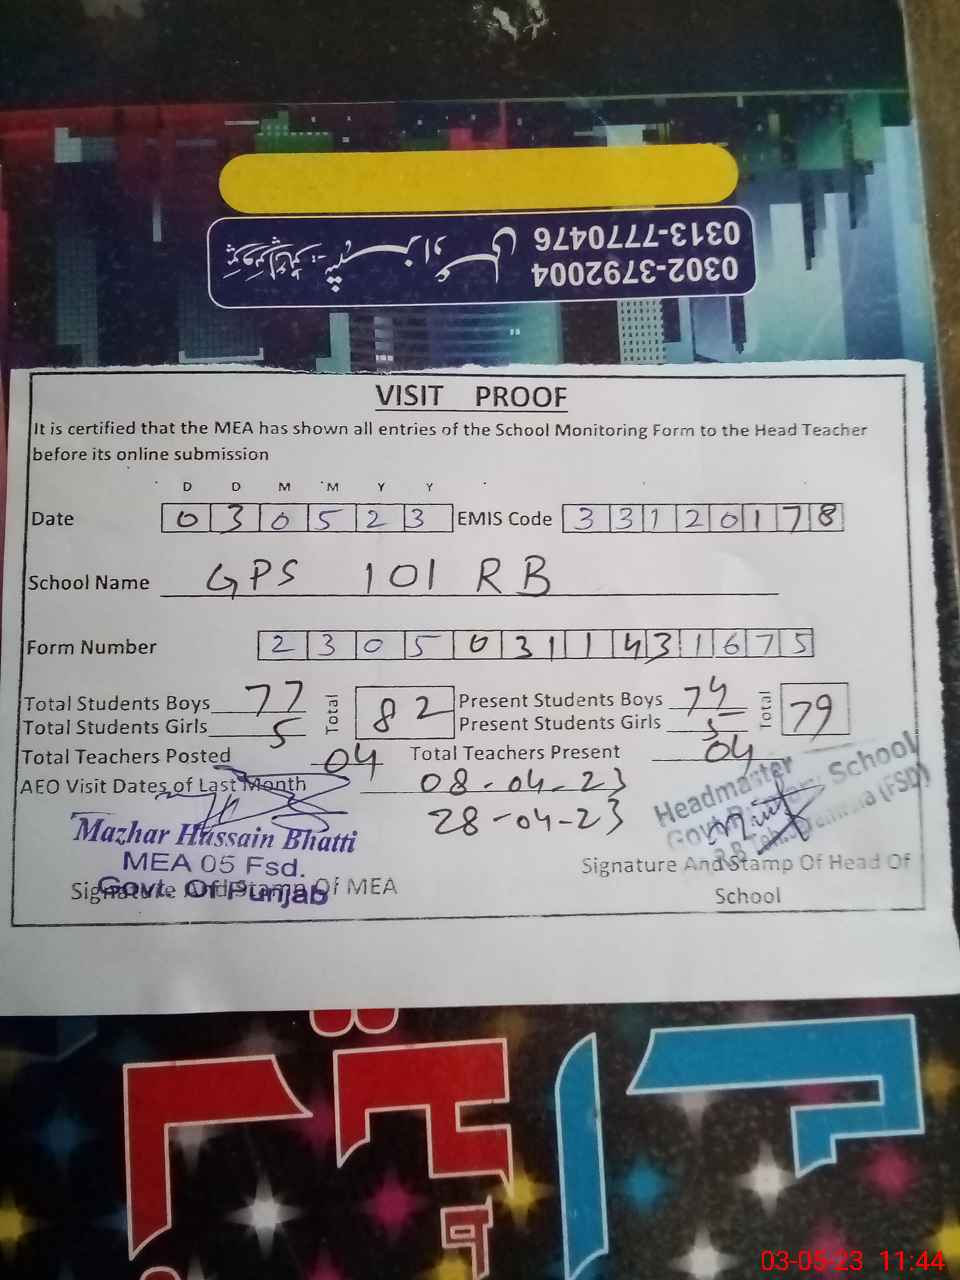 0302-3792004
0313-7770476
VISIT PROOF
It is certified that the MEA has shown all entries of the School Monitoring Form to the Head Teacher
before its online submission
D D M M Y Y
Date 0 3 0 5 2 3 EMIS Code 3 3 1 2 0 1 7 8
School Name GPS 101 RB
Form Number 2 3 0 5 0 3 1 1 4 3 1 6 7 5
Total Students Boys 77 Total 82 Present Students Boys 74 Total 79
Total Students Girls 5 Present Students Girls 5
Total Teachers Posted 04 Total Teachers Present 04
AEO Visit Dates of Last Month 08-04-23
28-04-23
Mazhar Hussain Bhatti
MEA 05 Fsd.
Govt. Of Punjab
Signature And Stamp Of MEA
Headmaster
School
(FSD)
Signature And Stamp Of Head Of
School
03-05-23 11:44